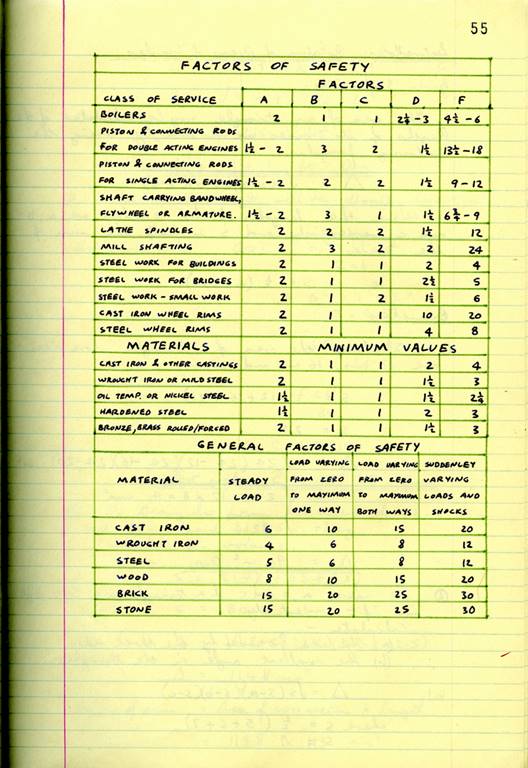 55
FACTORS OF SAFETY
FACTORS
CLASS OF SERVICE A B C D F
BOILERS 2 1 1 2¼ - 3 4½ - 6
PISTON & CONNECTING RODS
FOR DOUBLE ACTING ENGINES 1½ - 2 3 2 1½ 13½ - 18
PISTON & CONNECTING RODS
FOR SINGLE ACTING ENGINES 1½ - 2 2 2 1½ 9 - 12
SHAFT CARRYING BANDWHEEL,
FLYWHEEL OR ARMATURE. 1½ - 2 3 1 1½ 6¾ - 9
LATHE SPINDLES 2 2 2 1½ 12
MILL SHAFTING 2 3 2 2 24
STEEL WORK FOR BUILDINGS 2 1 1 2 4
STEEL WORK FOR BRIDGES 2 1 1 2½ 5
STEEL WORK - SMALL WORK 2 1 2 1½ 6
CAST IRON WHEEL RIMS 2 1 1 10 20
STEEL WHEEL RIMS 2 1 1 4 8
MATERIALS MINIMUM VALUES
CAST IRON & OTHER CASTINGS 2 1 1 2 4
WROUGHT IRON OR MILD STEEL 2 1 1 1½ 3
OIL TEMP. OR NICKEL STEEL 1½ 1 1 1½ 2¼
HARDENED STEEL 1½ 1 1 2 3
BRONZE, BRASS ROLLED/FORGED 2 1 1 1½ 3
GENERAL FACTORS OF SAFETY
LOAD VARYING LOAD VARYING SUDDENLEY
MATERIAL STEADY FROM ZERO FROM ZERO VARYING
LOAD TO MAXIMUM TO MAXIMUM LOADS AND
ONE WAY BOTH WAYS SHOCKS
CAST IRON 6 10 15 20
WROUGHT IRON 4 6 8 12
STEEL 5 6 8 12
WOOD 8 10 15 20
BRICK 15 20 25 30
STONE 15 20 25 30